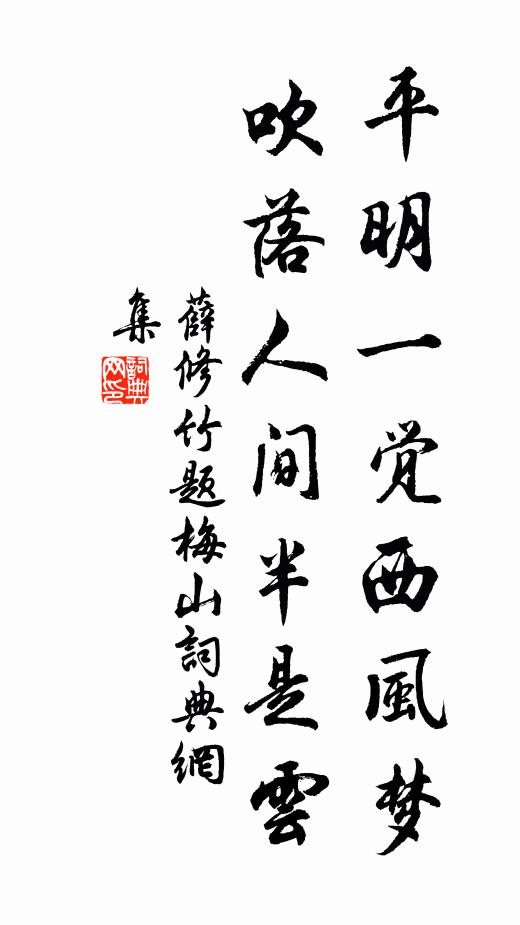 平明一觉西風梦
吹落人间半是雲
薛修竹题梅山詞典網
集
詞典網印